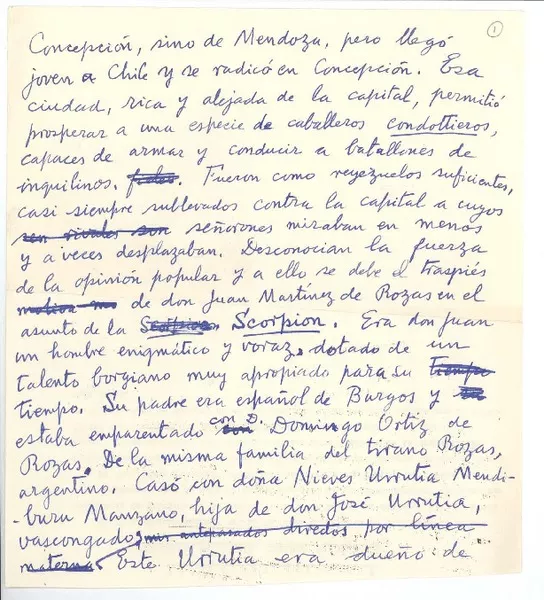 1
Concepción, sino de Mendoza, pero llegó
joven a Chile y se radicó en Concepción. Esa
ciudad, rica y alejada de la capital, permitió
prosperar a una especie de caballeros condottieros,
capaces de armar y conducir a batallones de
inquilinos. Fueron como reyezuelos suficientes,
casi siempre sublevados contra la capital a cuyos
sus rivales son señorones miraban en menos
y a veces desplazaban. Desconocian la fuerza
de la opinión popular y a ello se debe el traspiés
de don Juan Martínez de Rozas en el
asunto de la Scorpion. Scorpion. Era don Juan
un hombre enigmático y voraz, dotado de un
talento borgiano muy apropiado para su tiempo
tiempo. Su padre era español de Burgos y
estaba emparentado con D. Domingo Ortiz de
Rozas. De la misma familia del tirano Rozas,
argentino. Casó con doña Nieves Urrutia Mendi-
buru Manzano, hija de don José Urrutia,
vascongado, mis antepasados directos por línea
materna. Este Urrutia era dueño de